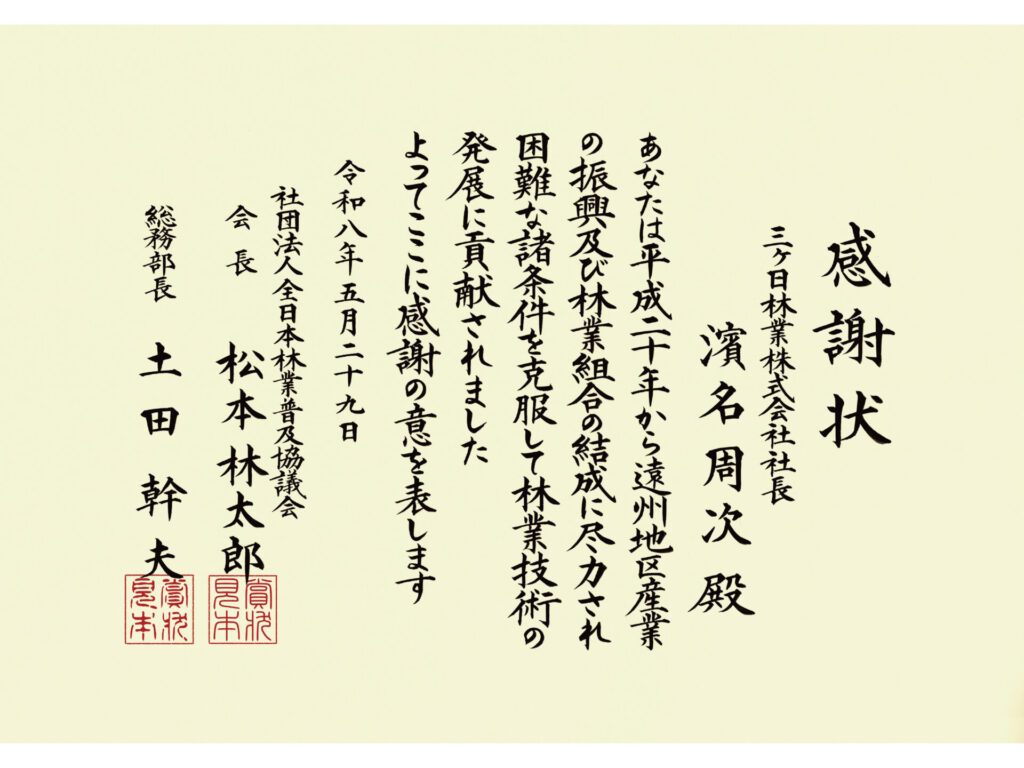 感謝状
三ヶ日林業株式会社社長
濱名周次殿
あなたは平成二十年から遠州地区産業
の振興及び林業組合の結成に尽力され
困難な諸条件を克服して林業技術の
発展に貢献されました
よってここに感謝の意を表します
令和八年五月二十九日
社団法人全日本林業普及協議会
会長 松本林太郎
賞状見本
総務部長 土田幹夫
賞状見本